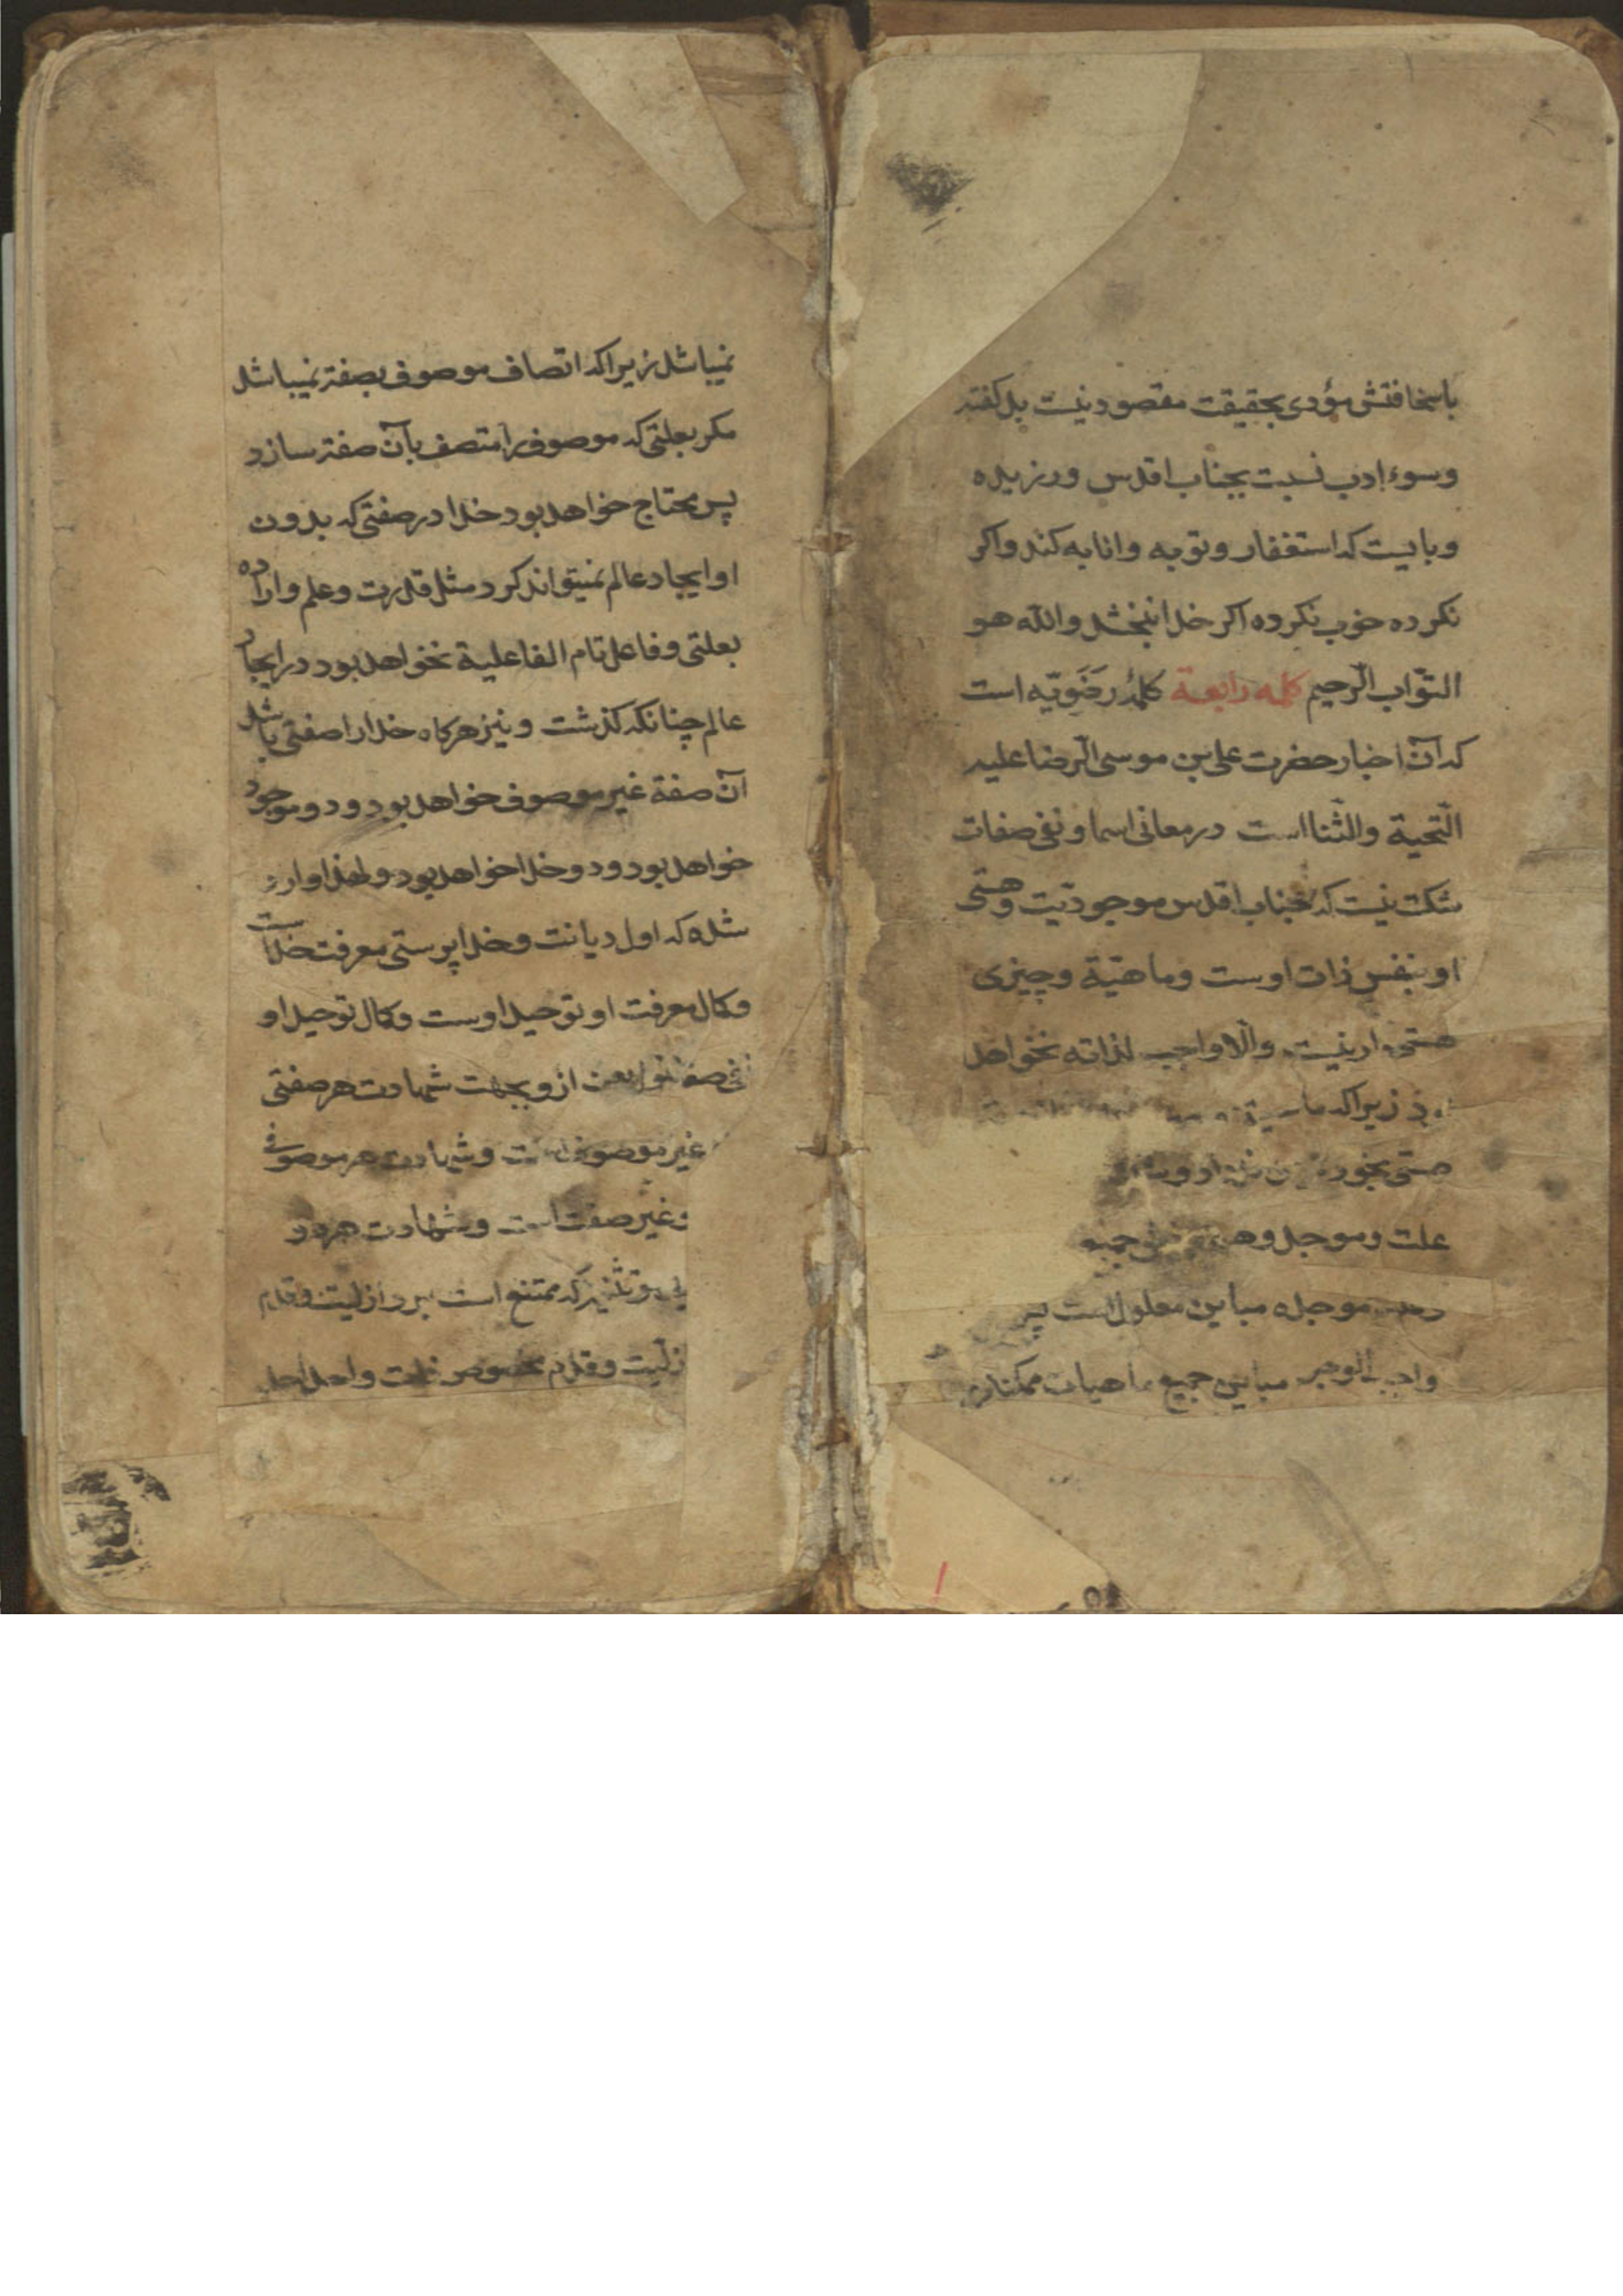 باسخافتش مؤدی بحقیقت مقصود نیست بل گفته
وسوء ادب نسبت بجناب اقدس ورزیده
وبایست که استغفار وتوبه وانابه کند واکر
نکرده خوب نکرده اکر خدا نبخشد والله هو
التوّاب الرّحیم کلمه رابعة کلمهٔ رضَویّه است
که آن اخبار حضرت علی بن موسی الرّضا علیه
التّحیة والثّنا است در معانی اسما ونفی صفات
شکت نیست که جناب اقدس موجودیّت وهستی
او بنفس ذات اوست وماهیّة وچیزی
هستی دار نیست والّا واجب لذاته نخواهد
زیراکه
هستی بخود
علت وموجد
موجده مباین معلول است پس
مباین جمیع ماهیات ممکنه
نمیباشد زیراکه اتصاف موصوف بصفة نمیباشد
مکر بعلتی که موصوف را متصف بآن صفة سازد
پس محتاج خواهد بود خدا در صفتی که بدون
او ایجاد عالم نمیتواند کرد مثل قدرت وعلم واراده
بعلتی وفاعل تام الفاعلیة نخواهد بود در ایجاد
عالم چنانکه کذشت ونیز هرکاه خدا را صفتی باشد
آن صفة غیر موصوف خواهد بود ودو موجود
خواهد بود ودو خدا خواهد بود ولهذا وارد
شده که اول دیانت وخدا پرستی معرفت خداست
وکمال معرفت او توحید اوست وکمال توحید او
نفی از وبجهت شهادت هر صفتی
غیر موصوف است وشهادت هر موصوفی
غیر صفت است وشهادت هر دو
که ممتنع است بر او ازلیت وقدم
ازلیت وقدم مخصوص ذات واحد احد